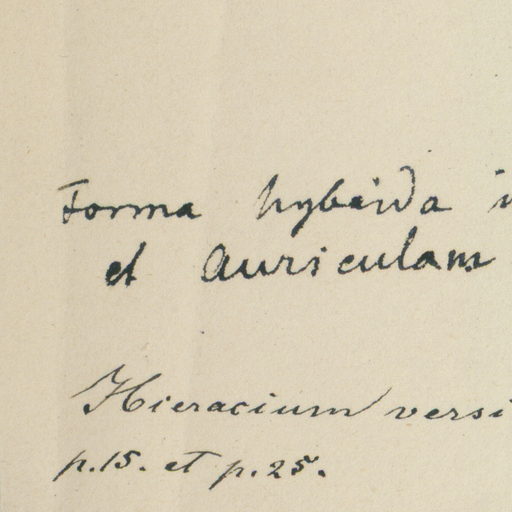 Forma hybrida i
et Auriculam
Hieracium versi
p. 15. et p. 25.